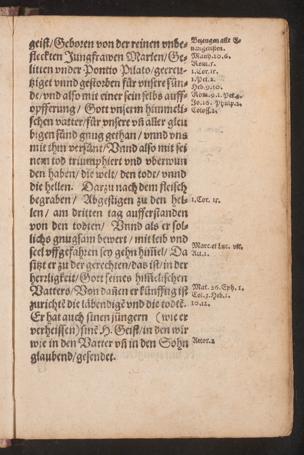 geist/Geboren von der reinen vnbe-
fleckten Jungfrawen Marien/Ge-
litten vnder Pontio Pilato/gecreu-
tziget vnnd gestorben für vnsere sün-
de/vnd also mit einer sein selbs auff-
opfferung/ Gott vnserm himmeli-
schen vatter/für vnsere vñ aller gleu
bigen sünd gnug gethan/ vnnd vns
mit ihm versünt/Vnnd also mit sei
nem tod triumphiert vnd vberwun
den haben/die welt/den todt/vnnd
die hellen. Darzu nach dem fleisch
begraben/ Abgestigen zu den hel-
len/ am dritten tag aufferstanden
von den todten/ Vnnd als er sol-
lichs gnugsam bewert/mit leib vnd
seel vffgefahren sey gehn himel/Da
sitzt er zu der gerechten/das ist/in der
herrligkeit/Gott seines himelischen
Vatters/Von dañen er künfftig ist
zurichtē die läbendigē vnd die todtē.
Er hat auch sinen jüngern (wie er
verheissen)sinē H. Geist/in den wir
wie in den Vatter vñ in den Sohn
glaubend/gesendet.
Matth.20.6.
Rom.5.
1.Cor.15.
1.Pet.2.
Heb.9.10.
Rom.9.1.Pet.4.
Jo.16. Philip.2.
Coloss.2.
1.Cor. 15.
Marc.et Luc. vlt.
Act.1.
Mat. 26. Eph. 1.
Col.3.Heb.1.
10.12.
Actor.2